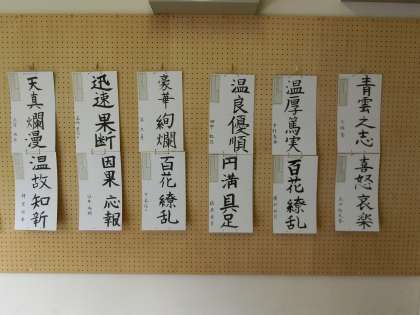 青雲之志
温厚篤実
温良優順
豪華絢爛
迅速果断
天真爛漫
喜怒哀楽
百花繚乱
円満具足
百花繚乱
因果応報
温故知新